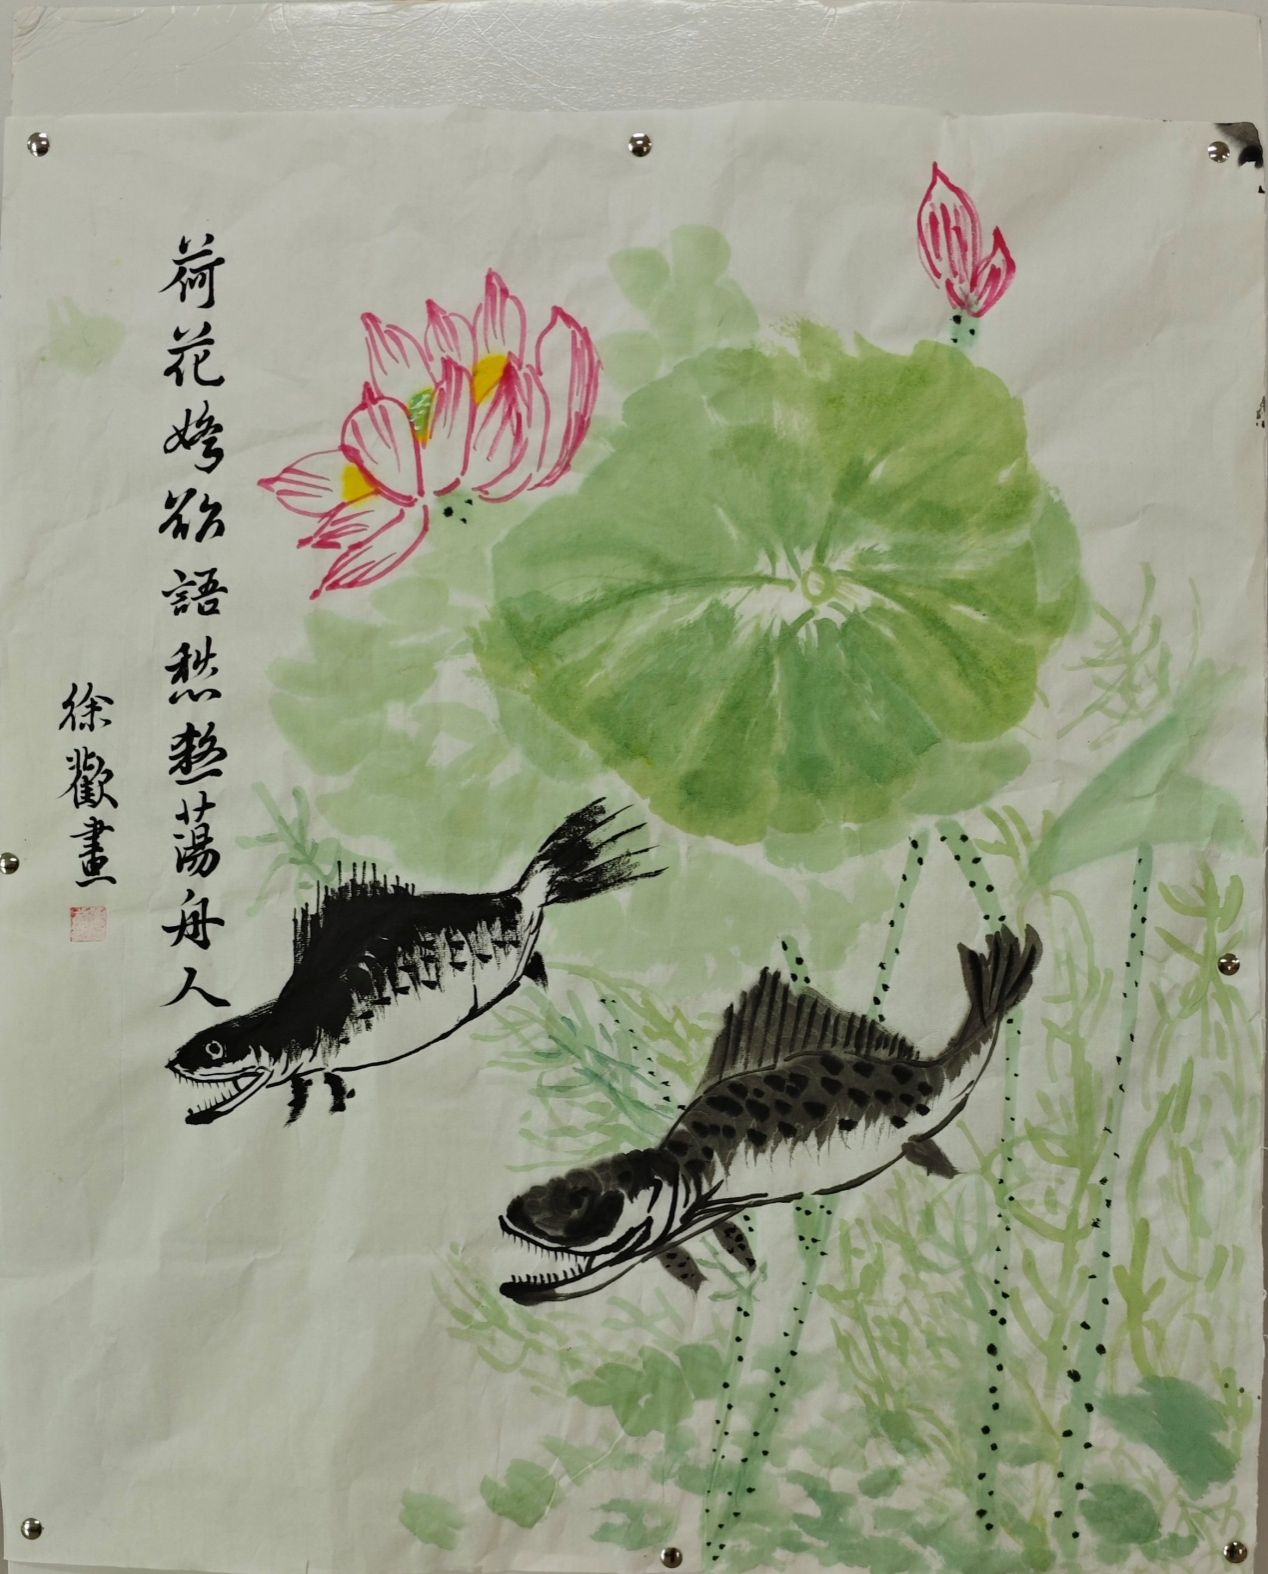 荷花嬌欲語愁煞蕩舟人
徐歡畫